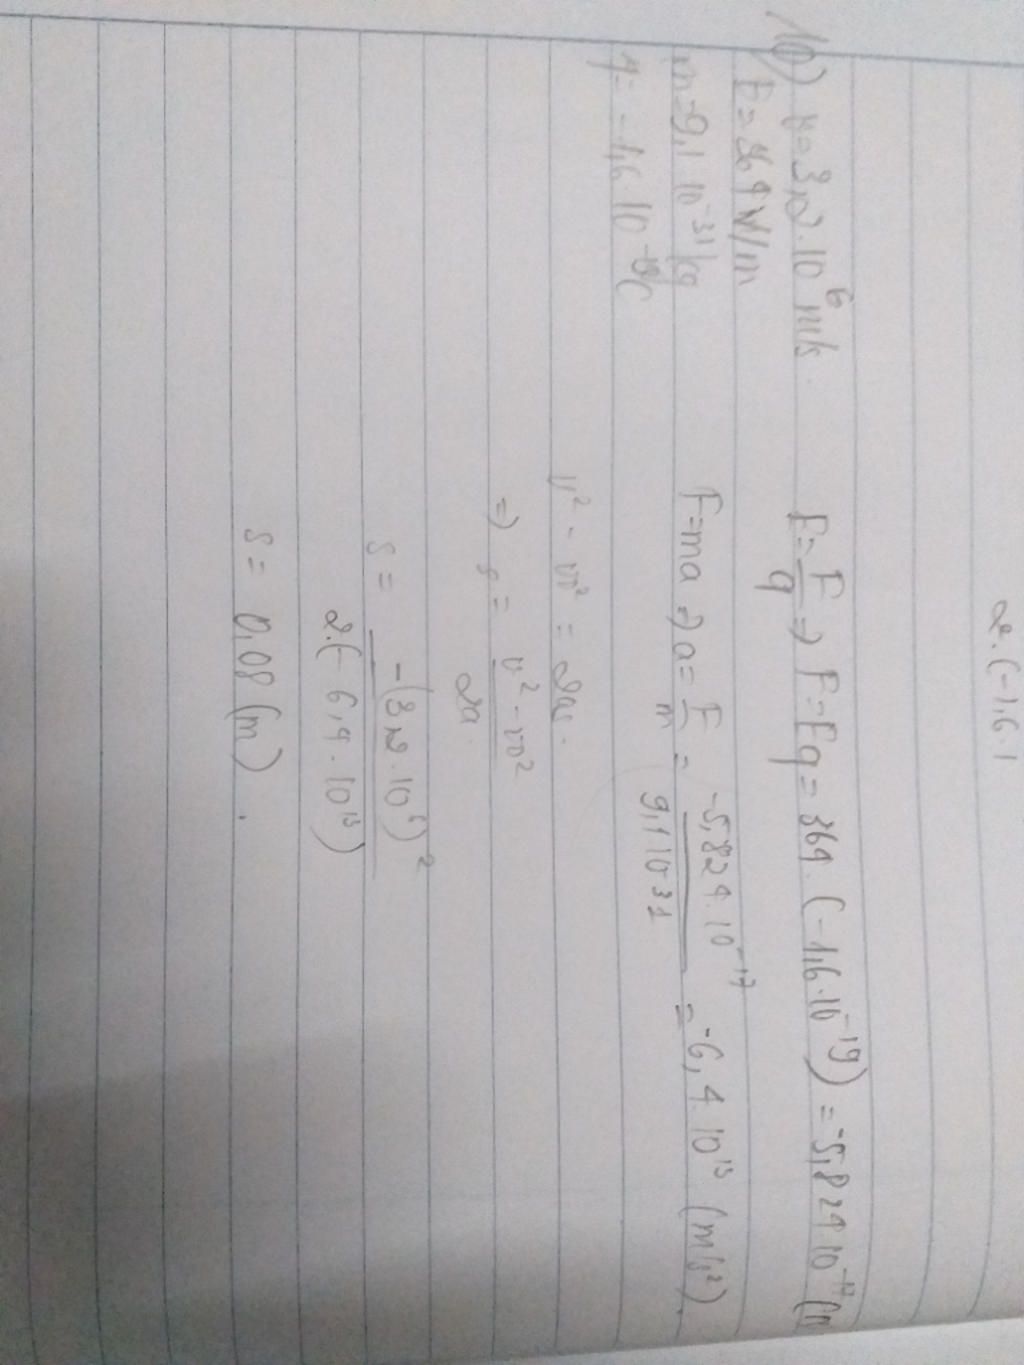 2.(-1,6.1
10) v=3,2.10⁶ m/s.
E=364 V/m
m=9,1 10⁻³¹ kg
q=-1,6 10⁻¹⁹C
E=F/q => F=Eq=364.(-1,6.10⁻¹⁹)=-5,824 10⁻¹⁷(N
F=ma => a=F/m = -5,824.10⁻¹⁷/9,1 10⁻³¹ = -6,4 10¹³ (m/s²).
v² - vo² = 2as.
=> s = v² - vo²/2a.
s = -(3,2.10⁶)²/2.(-6,4.10¹³)
s = 0,08 (m).